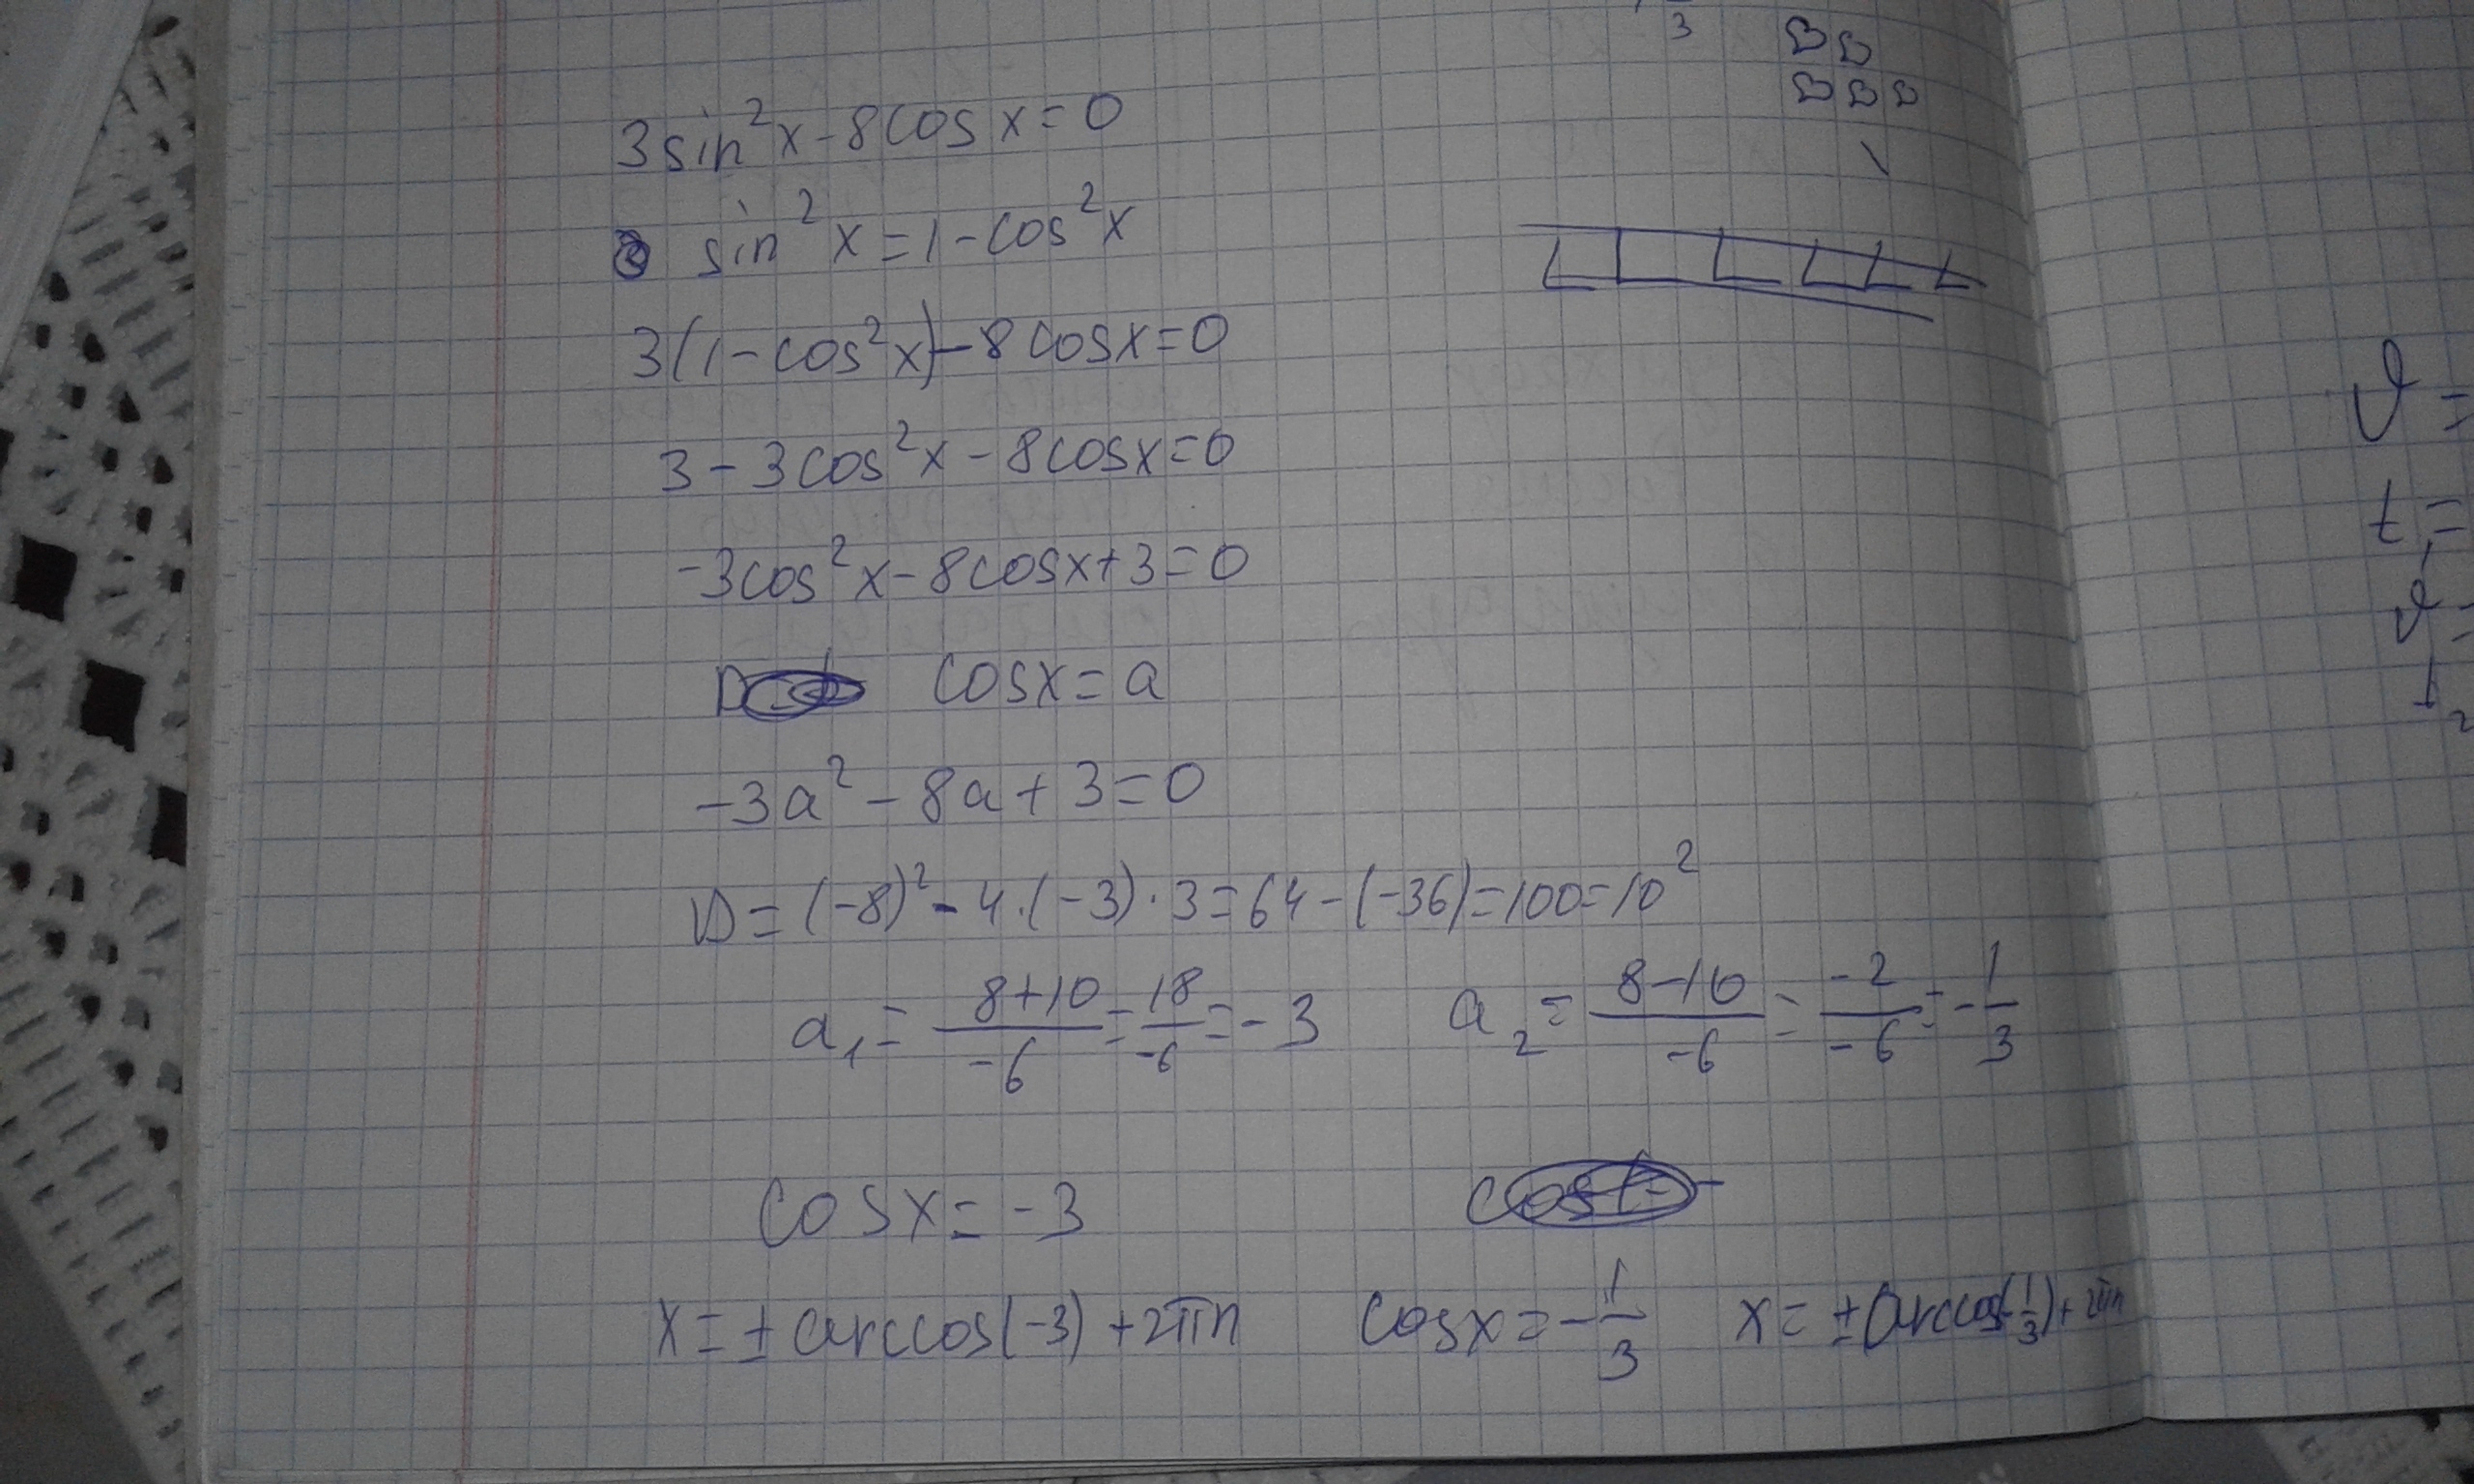 3
3sin²x-8cosx=0
sin²x=1-cos²x
3(1-cos²x)-8cosx=0
3-3cos²x-8cosx=0
-3cos²x-8cosx+3=0
D cosx=a
-3a²-8a+3=0
D=(-8)²-4·(-3)·3=64-(-36)=100=10²
a₁=(8+10)/(-6)=18/(-6)=-3 a₂=(8-10)/(-6)=(-2)/(-6)=-1/3
cosx=-3
x=±arccos(-3)+2πn cosx=-1/3 x=±arccos(-1/3)+2πn
t₁=